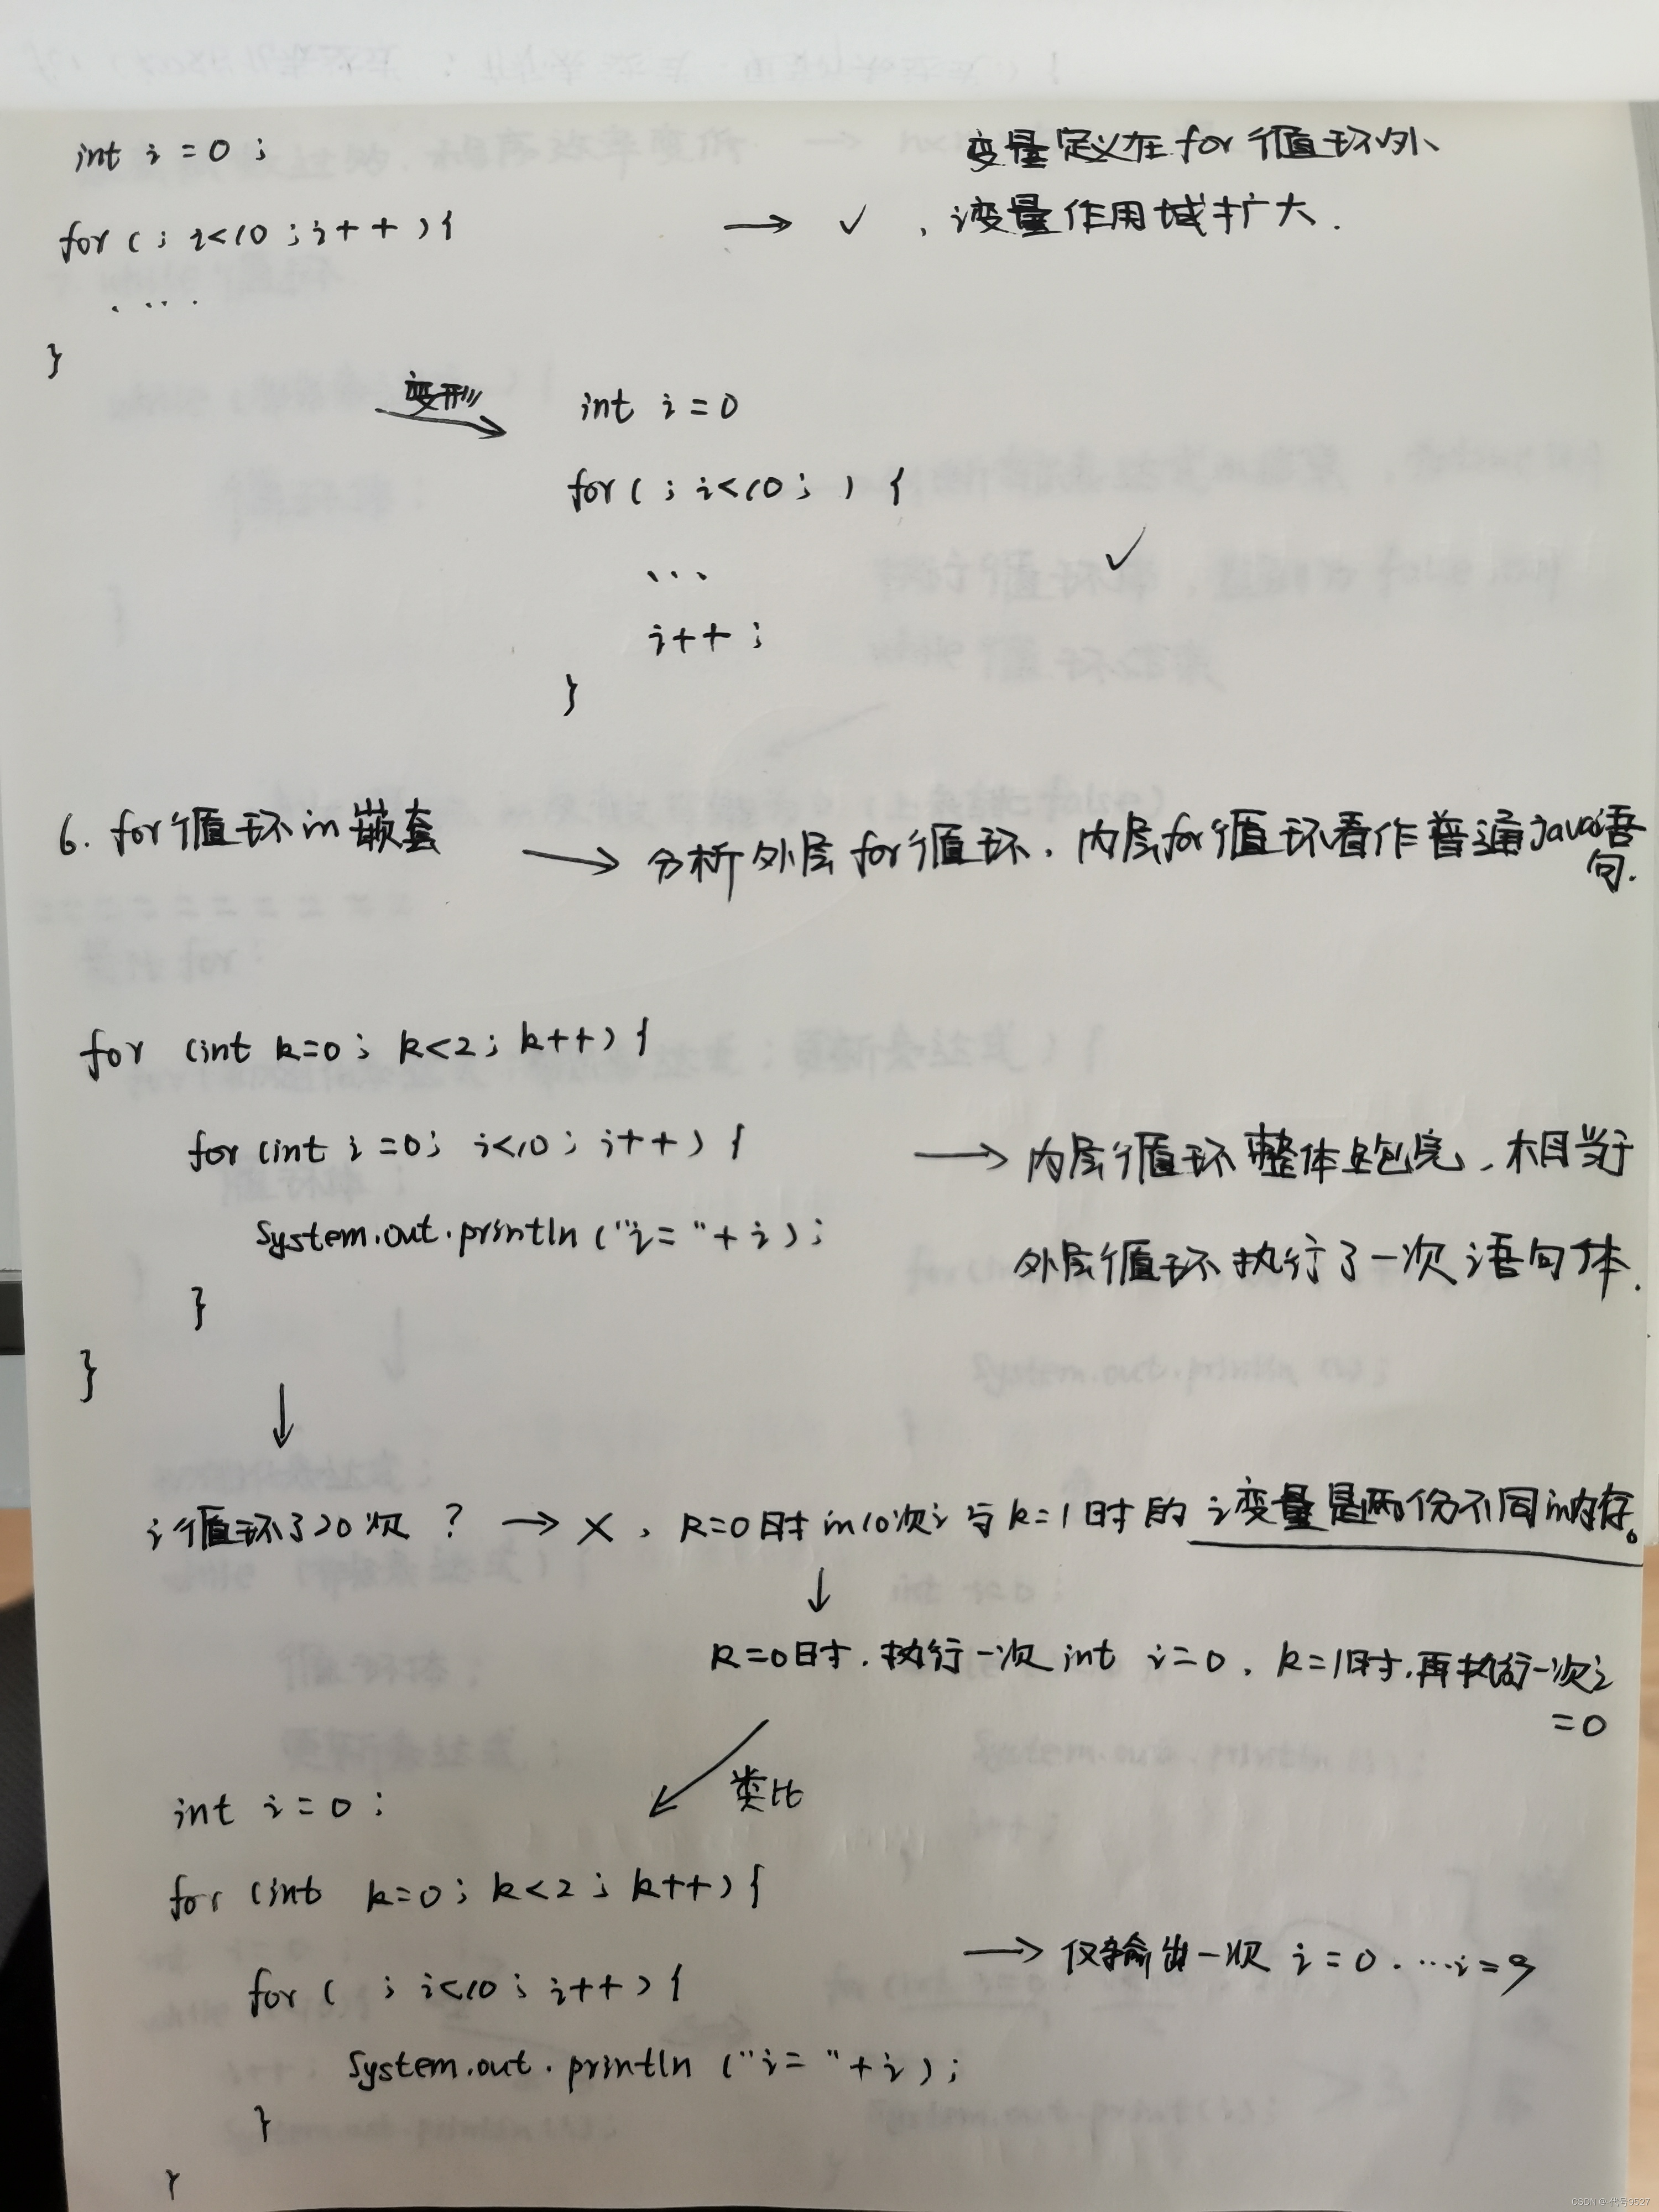 int i = 0 ;
变量定义在 for 循环外、
for ( ; i<10 ; i++ ) {
→ ✓ , i变量作用域扩大.
....
}
变形
int i = 0
for ( ; i<10 ; ) {
...
✓
i++ ;
}
6. for循环in嵌套
→ 分析外层 for循环, 内层for循环看作普通Java语
句.
for (int k=0 ; k<2 ; k++) {
for (int i =0 ; i<10 ; i++) {
→ 内层循环整体跑完, 相当于
System.out.println ("i= "+ i) ;
外层循环执行了一次语句体.
}
}
↓
i循环了20次 ? → × , k=0时in10次i与k=1时的 i变量是两份不同in内存。
↓
k=0时, 执行一次 int i=0 , k=1时, 再执行一次i
=0
类比
int i = 0 ;
for (int k=0 ; k<2 ; k++) {
→ 仅输出一次 i = 0 . ...i=9
for ( ; i<10 ; i++ ) {
System.out.println ("i= "+ i ) ;
}
}
CSDN @代号9527